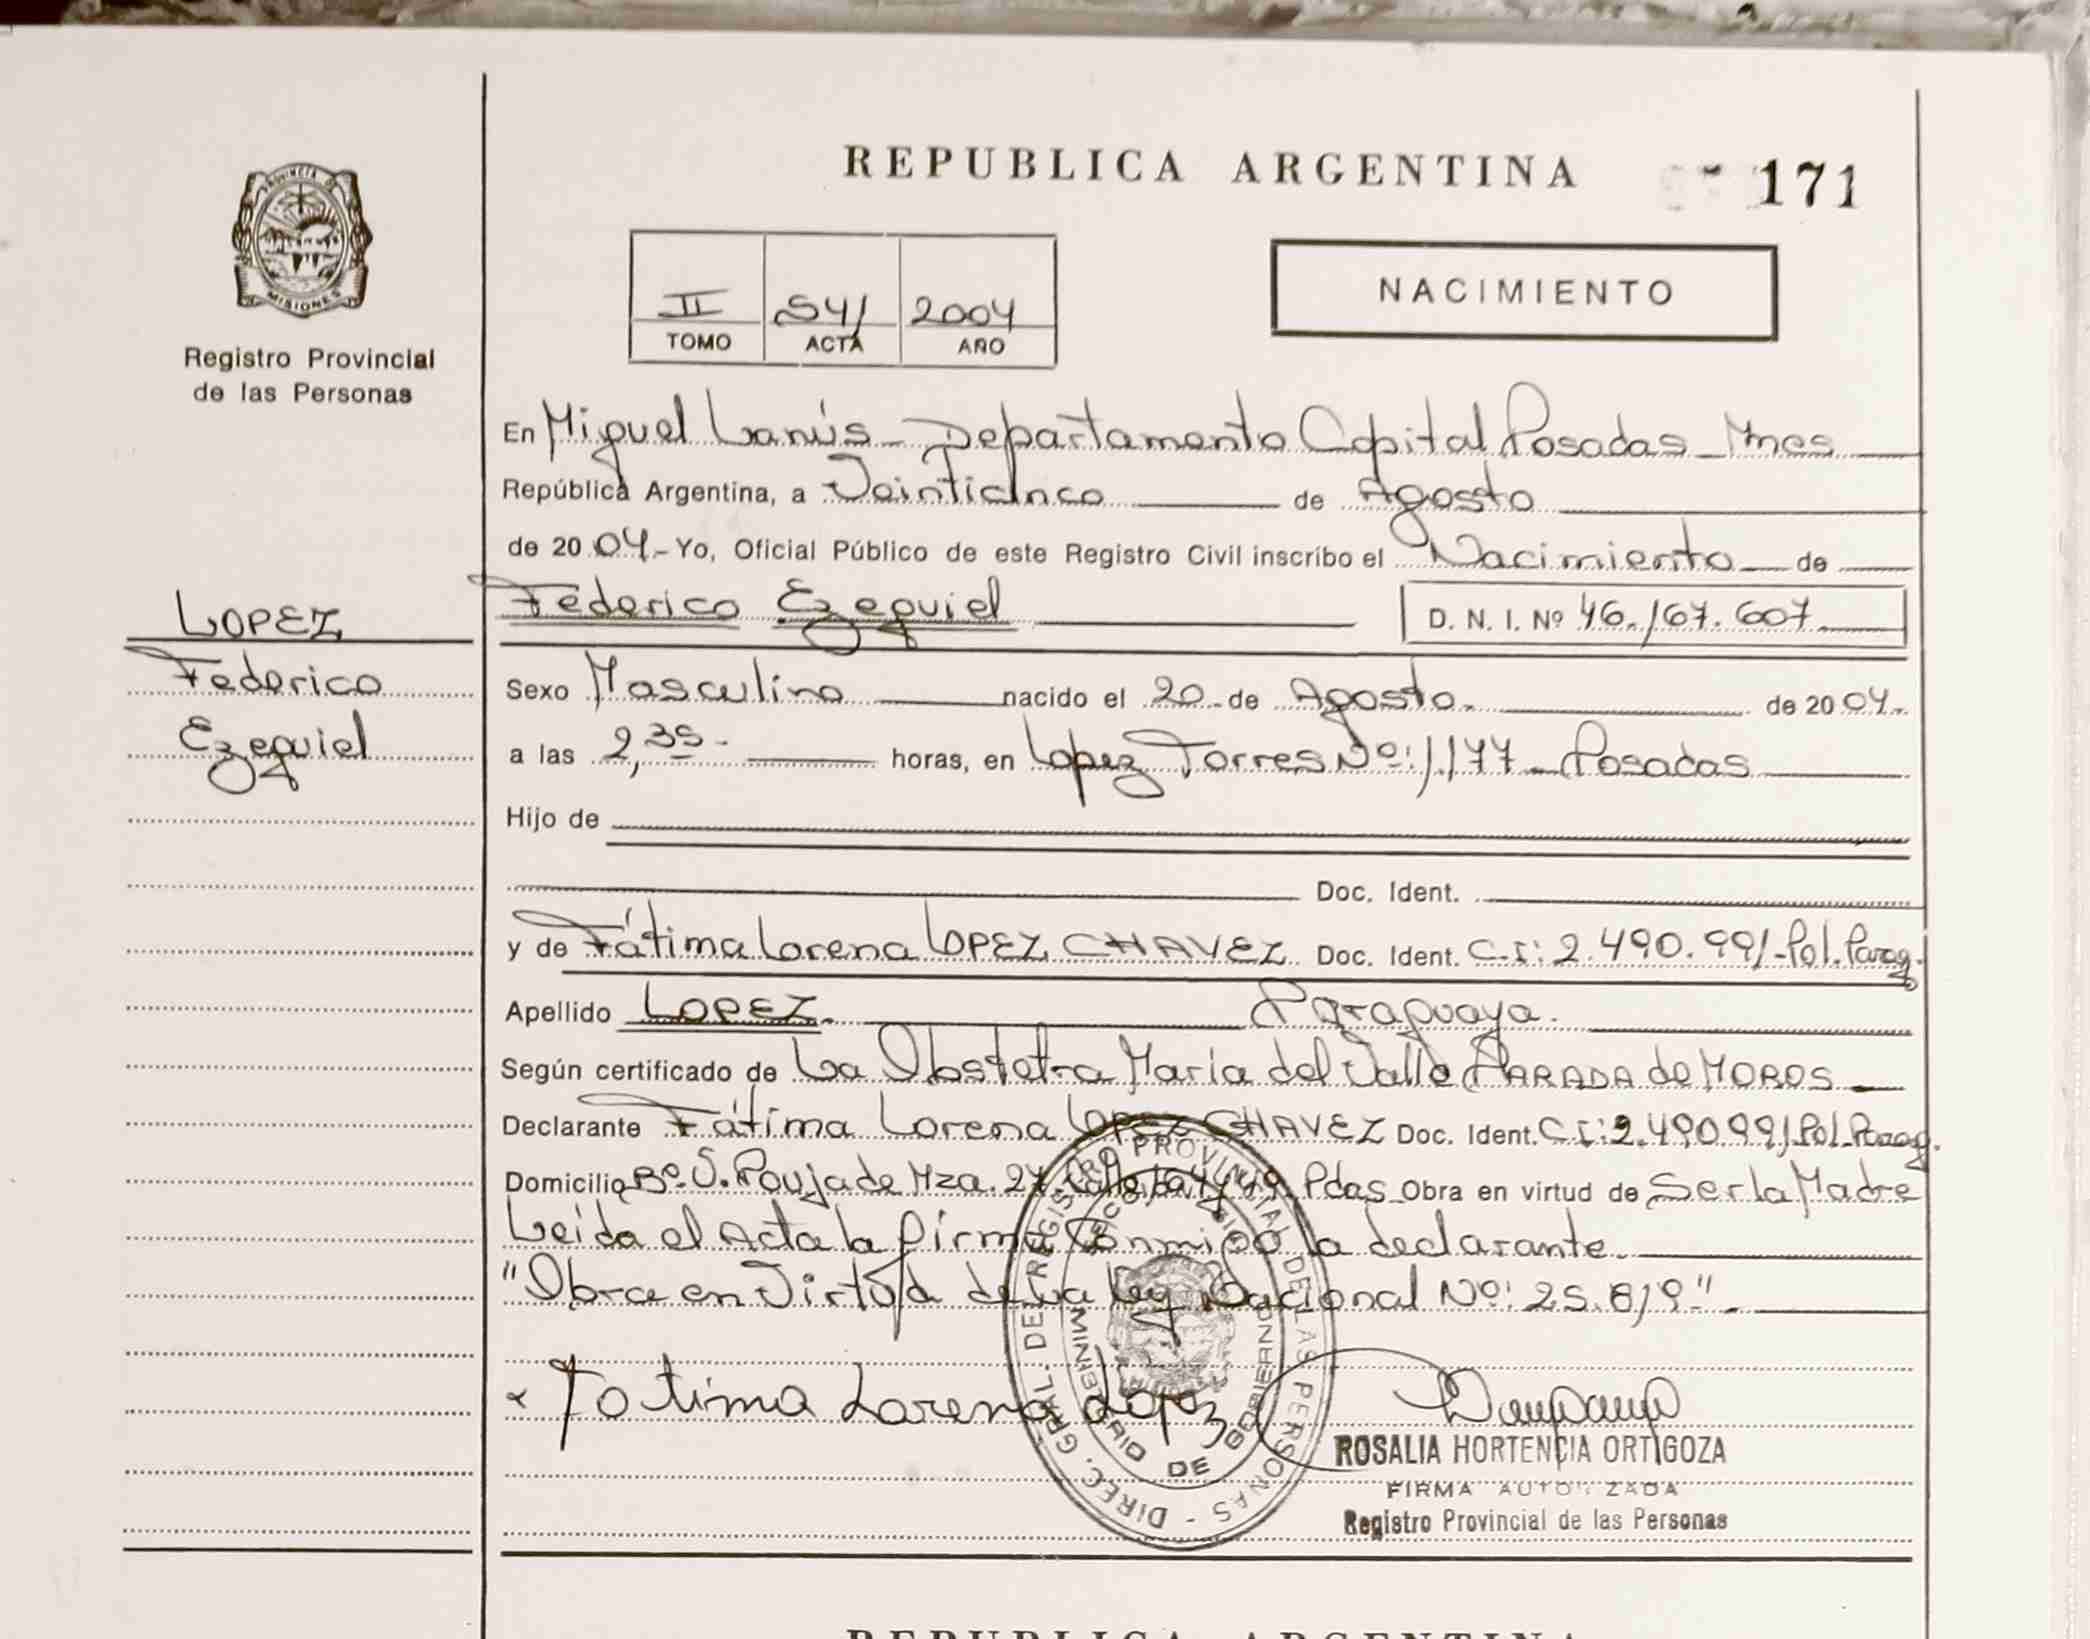 REPUBLICA ARGENTINA
171
PROVINCIA DE MISIONES
Registro Provincial
de las Personas
II 541 2004
TOMO ACTA AÑO
NACIMIENTO
En Miguel Lanús - Departamento Capital Posadas - Mnes
República Argentina, a Veinticinco de Agosto
de 2004.- Yo, Oficial Público de este Registro Civil inscribo el Nacimiento de
Federico Ezequiel D. N. I. Nº 46.167.607
LOPEZ
Federico
Ezequiel
Sexo Masculino nacido el 20 de Agosto. de 2004.
a las 2,35- horas, en Lopez Torres Nº: 1.177 - Posadas
Hijo de
Doc. Ident.
y de Fátima Lorena LOPEZ CHAVEZ Doc. Ident. C.I: 2.490.991-Pol. Parag.
Apellido LOPEZ. Paraguaya.
Según certificado de La Obstetra Maria del Valle PARADA de MOROS
Declarante Fátima Lorena LOPEZ CHAVEZ Doc. Ident. C.I: 2.490.991 Pol. Parag.
Domicilio Bº. S. Poujade Mza. 27. Pdas Obra en virtud de Ser la Madre
Leida el Acta la firma Conmigo la declarante.
"Obra en Virtud de La Ley Nacional Nº: 25.819".
Fatima Lorena Lopez
DIREC. GRAL. DEL REGISTRO PROVINCIAL DE LAS PERSONAS -
MINISTERIO DE GOBIERNO
ROSALIA HORTENCIA ORTIGOZA
FIRMA AUTORIZADA
Registro Provincial de las Personas
REPUBLICA ARGENTINA